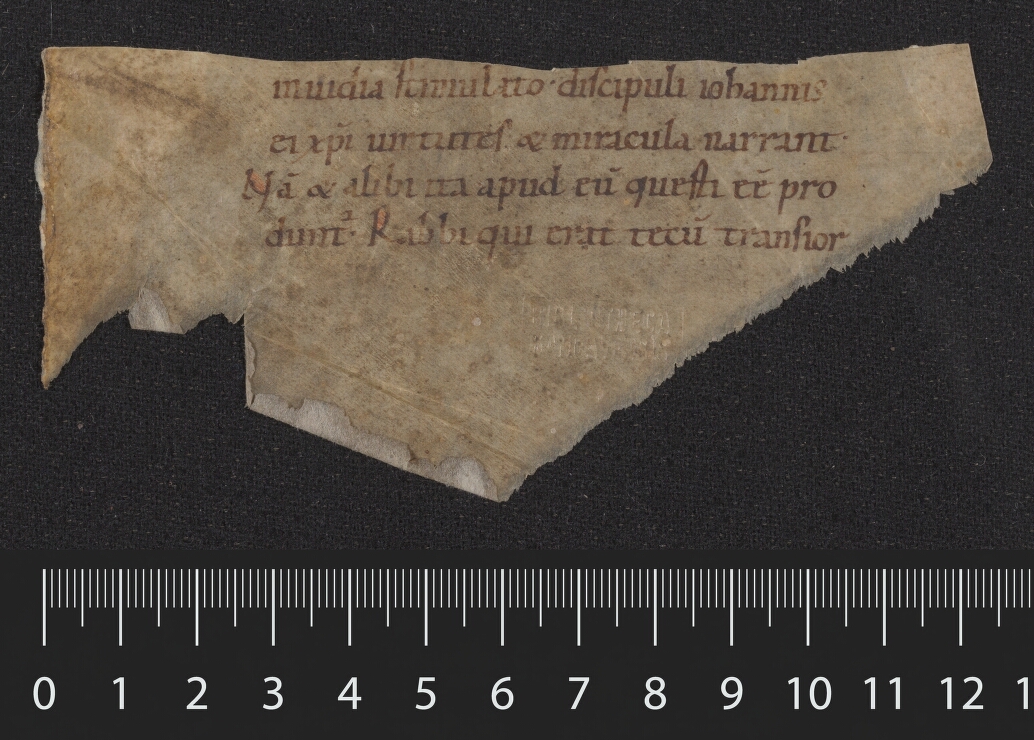 inuidia stimulato discipuli iohannis
ei xp̄i uirtutes & miracula narrant·
Nā & alibi ita apud eū questi eē pro
dunt᷑· Rabbi qui erat tecū transior
0 1 2 3 4 5 6 7 8 9 10 11 12 1